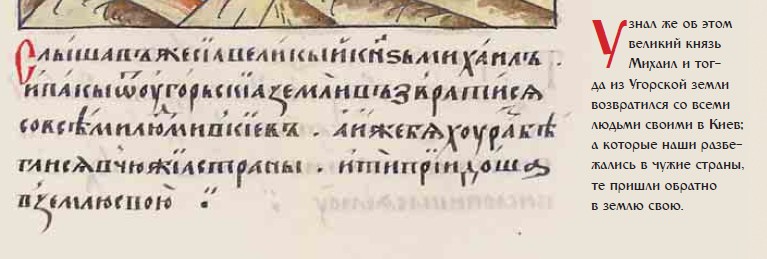 Слышавъ же сїа великый кн҃ѕь михаи́лъ .
и пакы ѿ оугорьскїа земли възвратисѧ
совсѣми людми в кїевъ . а иже бѧхоу разбѣ
глисѧ в чюжїа страны . и ти прїидоша
в землю свою ⁘
Узнал же об этом
великий князь
Михаил и тог-
да из Угорской земли
возвратился со всеми
людьми своими в Киев;
а которые наши разбе-
жались в чужие страны,
те пришли обратно
в землю свою.